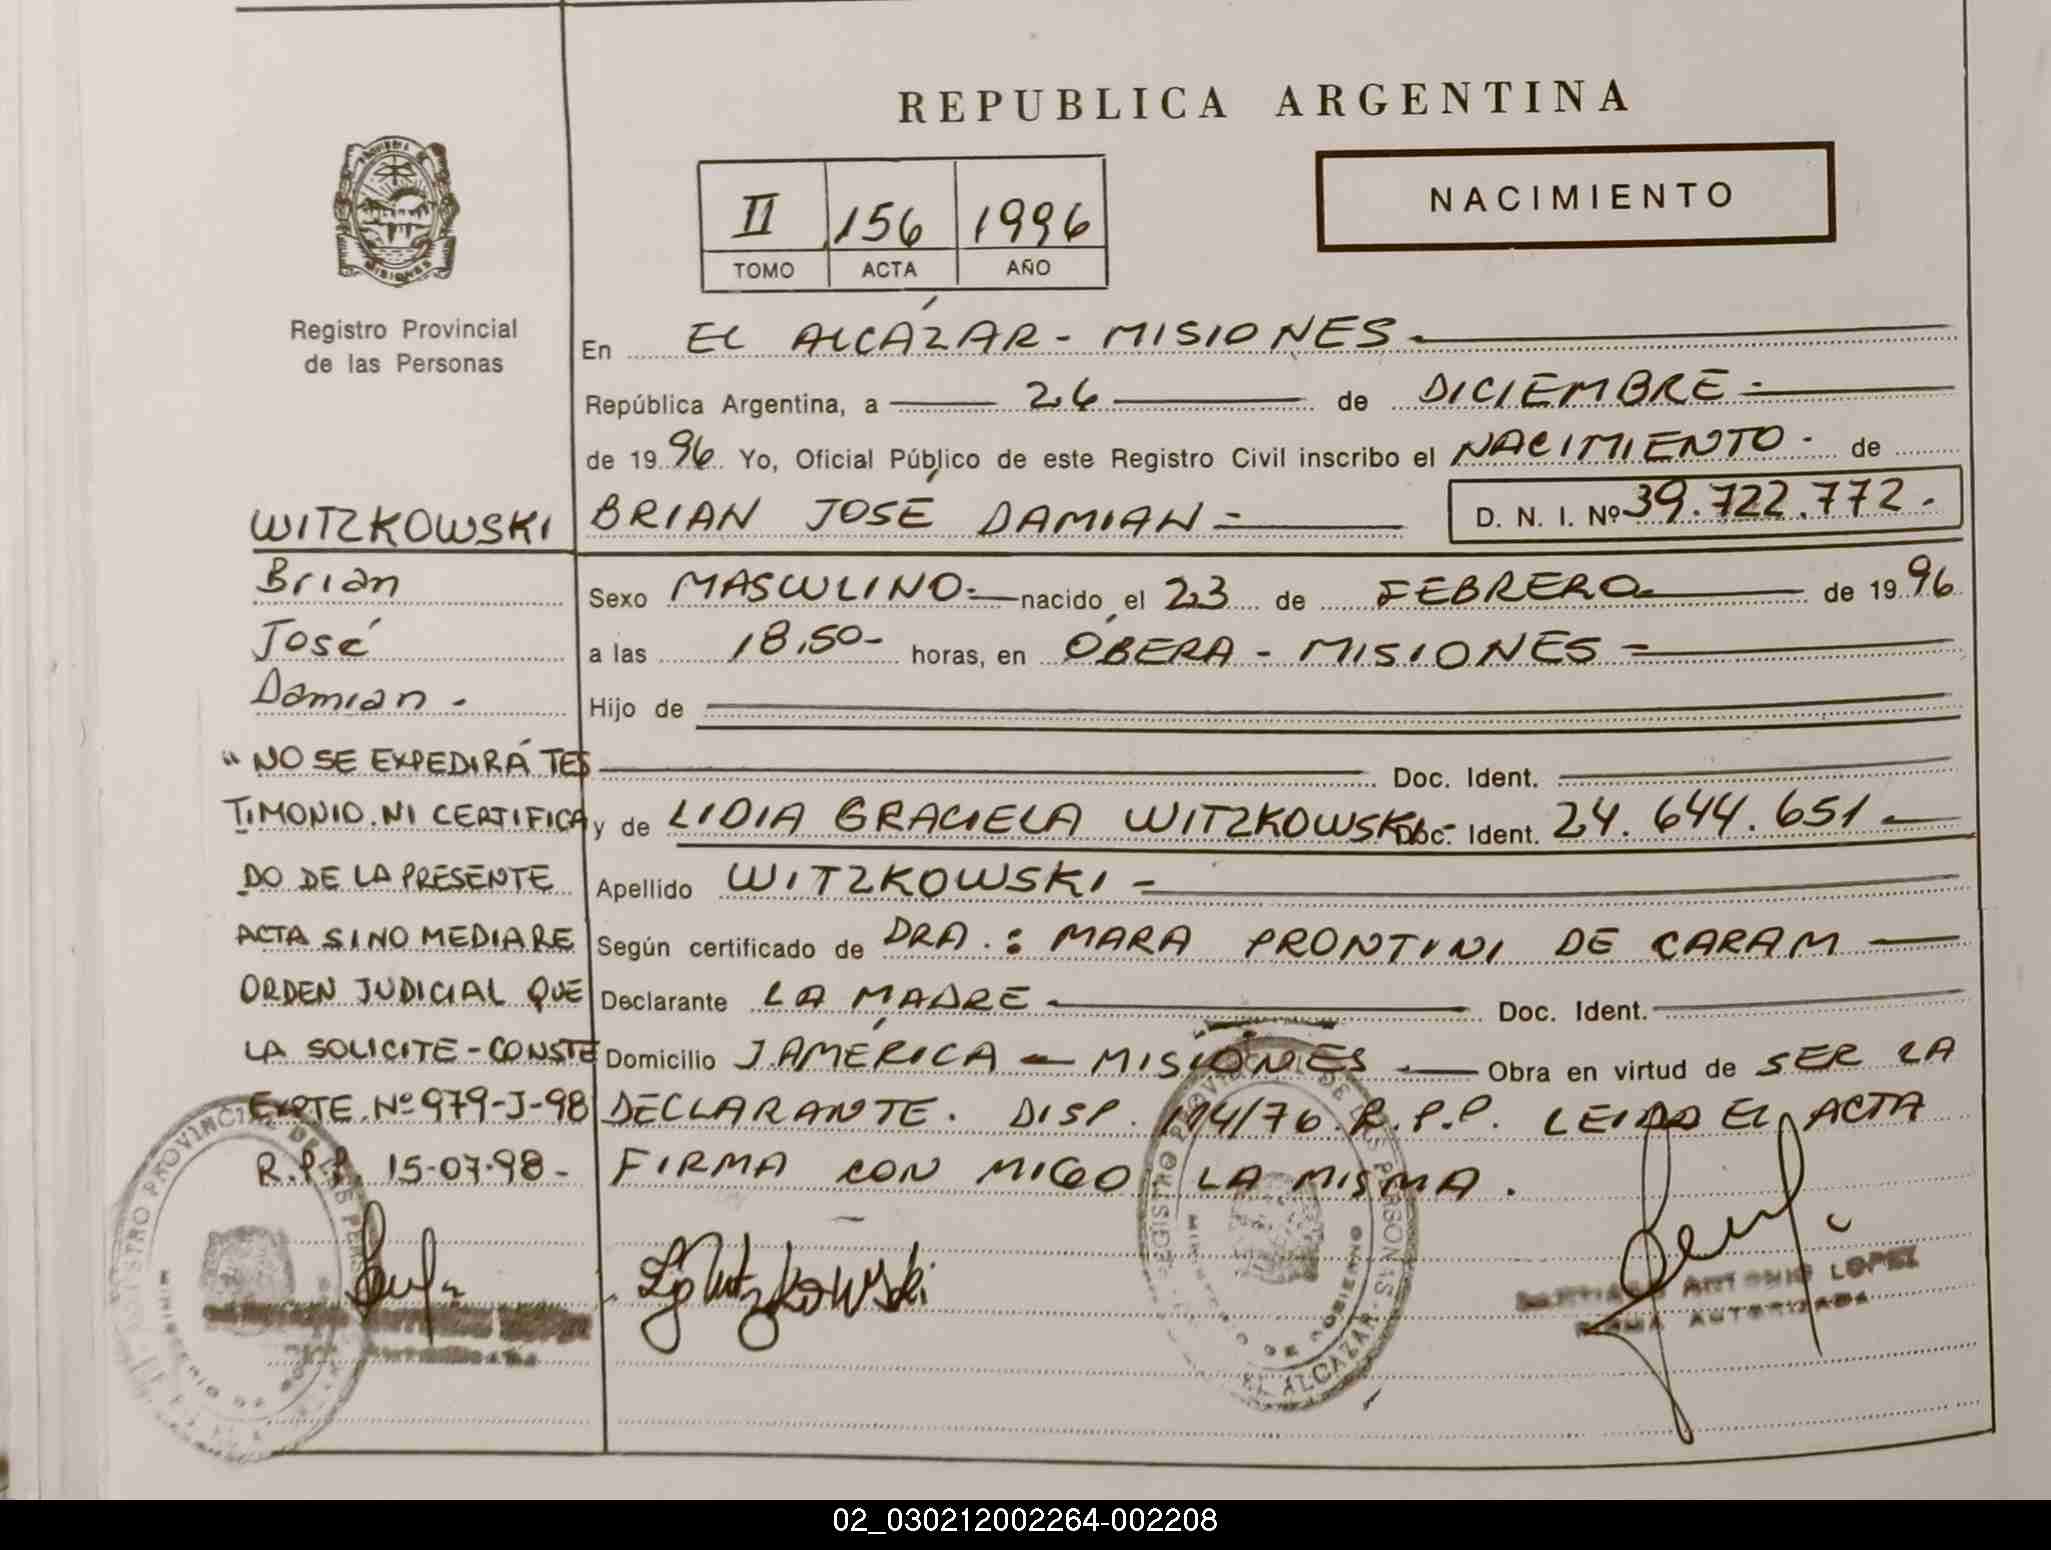 REPUBLICA ARGENTINA
NACIMIENTO
II 156 1996
TOMO ACTA AÑO
MISIONES
Registro Provincial
de las Personas
En EL ALCÁZAR - MISIONES
República Argentina, a 26 de DICIEMBRE
de 1996 Yo, Oficial Público de este Registro Civil inscribo el NACIMIENTO de
BRIAN JOSÉ DAMIAN D. N. I. Nº 39.722.772.
WITZKOWSKI
Brian
José
Damian.
Sexo MASCULINO nacido el 23 de FEBRERO de 1996
a las 18,50 horas, en ÓBERA - MISIONES
Hijo de
Doc. Ident.
y de LIDIA GRACIELA WITZKOWSKI Doc. Ident. 24.644.651
Apellido WITZKOWSKI
Según certificado de DRA.: MARA PRONTINI DE CARAM
Declarante LA MADRE Doc. Ident.
Domicilio J.AMÉRICA - MISIONES Obra en virtud de SER LA
DECLARANTE. DISP. 174/76 R.P.P. LEIDO EL ACTA
FIRMA CON MIGO LA MISMA.
"NO SE EXPEDIRÁ TES
TIMONIO NI CERTIFICA
DO DE LA PRESENTE
ACTA SINO MEDIARE
ORDEN JUDICIAL QUE
LA SOLICITE - CONSTE
EXPTE. Nº 979-J-98
R.P.P. 15-07-98-
REGISTRO PROVINCIAL DE LAS PERSONAS
MINISTERIO DE
Witzkowski
REGISTRO PROVINCIAL DE LAS PERSONAS
MINISTERIO DE GOBIERNO
EL ALCAZAR
ANTONIO LOPEZ
FIRMA AUTORIZADA
02_030212002264-002208